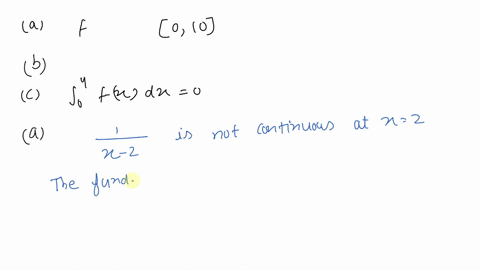 (a) f [0, 10]
(b)
(c) ∫₀⁴ f(x) dx = 0
(a) 1/(x-2) is not continuous at x=2
The fund.